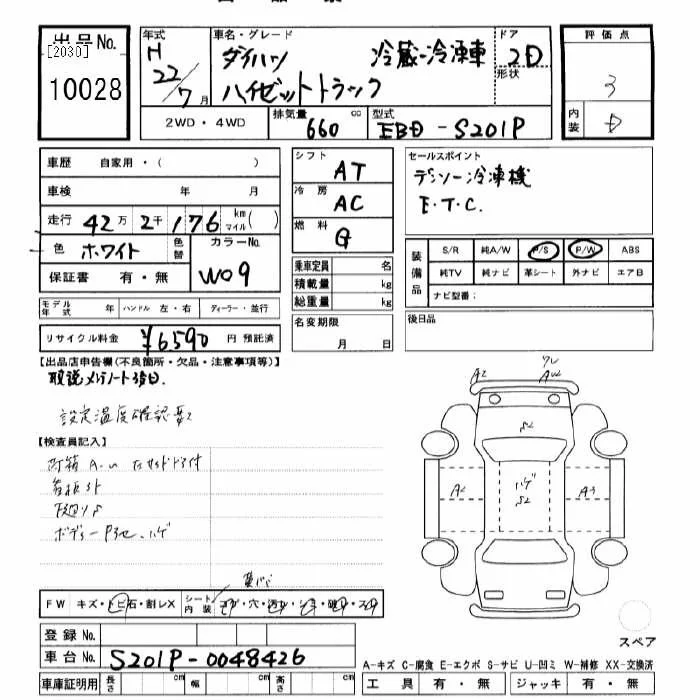 出品No.
[2030]
10028
年式
H 22/7月
車名・グレード
ダイハツ 冷蔵-冷凍車
ハイゼットトラック
ドア
2D
形状
評価点
3
内装
D
2WD・4WD
排気量
660 cc
型式
EBD-S201P
車歴 自家用・( )
車検 年 月
走行 42万2千176 km マイル( )
色 ホワイト
色替
カラーNo.
W09
保証書 有・無
モデル年式 年
ハンドル 左・右
ディーラー・並行
リサイクル料金 ¥6590 円 預託済
シフト AT
冷房 AC
燃料 G
乗車定員 名
積載量 kg
総重量 kg
名変期限
月 日
セールスポイント
デンソー冷凍機
E.T.C.
装備品
S/R 純A/W P/S P/W ABS
純TV 純ナビ 革シート 外ナビ エアB
ナビ型番:
後日品
【出品店申告欄(不良箇所・欠品・注意事項等)】
取説メンテノート後日.
設定温度確認要
【検査員記入】
荷箱 A.U
看板跡
下廻りS
ボディーP多、ハゲ
FW キズ・トビ石・割レX
シート内装
コゲ・穴・汚レ・シミ・破レ・スレ
登録No.
車台No. S201P-0048426
車庫証明用 長さ cm 幅 cm 高さ cm
A2
ワレ
AU2
S2
A2
ハゲ
S2
A3
スペア
A-キズ C-腐食 E-エクボ S-サビ U-凹ミ W-補修 XX-交換済
工具 有・無 ジャッキ 有・無